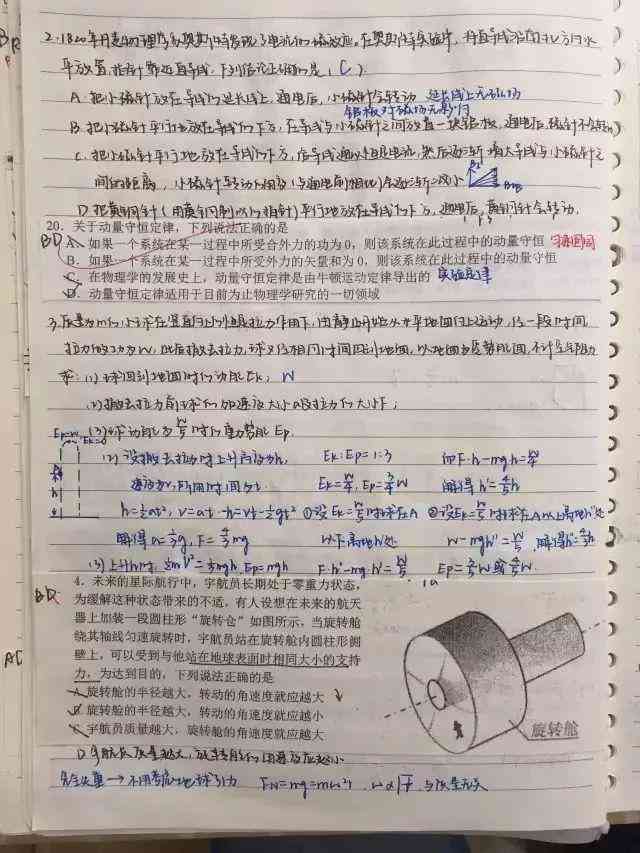 2. 1820年丹麦物理学家奥斯特发现了电流的磁效应。在奥斯特实验中，将直导线沿南北方向水
平放置，指针靠近直导线，下列结论正确的是（C）.
A. 把小磁针放在导线的延长线上，通电后，小磁针会转动 延长线上无磁场
铝板对磁场无影响
B. 把小磁针平行地放在导线的下方，在导线与小磁针之间放置一块铝板，通电后，磁针不会转动
C. 把小磁针平行地放在导线的下方，给导线通以恒定电流，然后逐渐增大导线与小磁针之
间的距离，小磁针转动的角度（与通电前相比）会逐渐减小
D. 把黄铜针（用黄铜制成的指针）平行地放在导线的下方，通电后，黄铜针会转动.
20. 关于动量守恒定律，下列说法正确的是
BD A. 如果一个系统在某一过程中所受合外力的功为0，则该系统在此过程中的动量守恒
B. 如果一个系统在某一过程中所受外力的矢量和为0，则该系统在此过程中的动量守恒
C. 在物理学的发展史上，动量守恒定律是由牛顿运动定律导出的 实验定律
D. 动量守恒定律适用于目前为止物理学研究的一切领域
3. 质量为m的小球在竖直向上的恒定拉力作用下，由静止开始从水平地面向上运动，经一段时间，
拉力做功为W，此后撤去拉力，球又经相同时间回到地面，以地面为零势能面，不计空气阻力
求：(1) 球回到地面时的动能Ek； W
(2) 撤去拉力前球的加速度大小a及拉力的大小F；
(3) 球动能为W/5时的重力势能Ep.
(2) 设撤去拉力时上升高度为h， Ek:Ep=1:3 而F·h-mgh=W/4
速度为v，所用时间为t. Ek=W/4, Ep=3/4W 解得h'=4/5h
h=½at², v=at -h=vt-½gt² ①设Ek=W/5时球在A ②设Ek=W/5时球在A以上离地h'处
解得a=⅓g, F=4/3mg 以下离地h'处 W-mgh'=W/5 解得h'=
(3) 上升h时 ½mv²=⅓mgh, Ep=mgh F·h'-mg·h'=W/5 Ep=3/5W或4/5W
4. 未来的星际航行中，宇航员长期处于零重力状态，
BD 为缓解这种状态带来的不适，有人设想在未来的航天
器上加装一段圆柱形“旋转舱”如图所示，当旋转舱
绕其轴线匀速旋转时，宇航员站在旋转舱内圆柱形侧
壁上，可以受到与他站在地球表面时相同大小的支持
力，为达到目的，下列说法正确的是
A. 旋转舱的半径越大，转动的角速度就应越大
B. 旋转舱的半径越大，转动的角速度就应越小
C. 宇航员质量越大，旋转舱的角速度就应越大
旋转舱
D. 宇航员质量越大，旋转舱的角速度就应越小
完全失重→不用考虑地球引力 FN=mg=mω²r 与质量无关